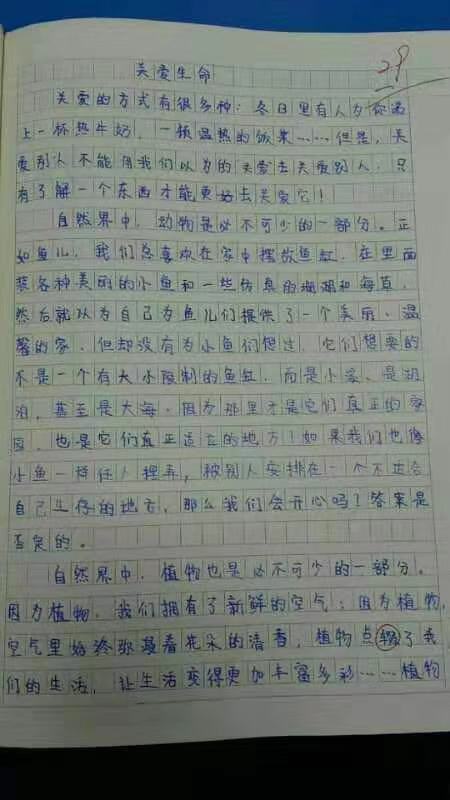 关爱生命
29
关爱的方式有很多种：冬日里有人为你递
上一杯热牛奶，一顿温热的饭菜……但是，关
爱别人不能用我们以为的关爱去关爱别人，只
有了解一个东西才能更好去关爱它！
自然界中，动物是必不可少的一部分。正
如鱼儿，我们总喜欢在家中摆放鱼缸，在里面
装各种美丽的小鱼和一些仿真的珊瑚和海草，
然后就以为自己为鱼儿们提供了一个美丽、温
馨的家，但却没有为小鱼们想过，它们想要的
不是一个有大小限制的鱼缸，而是小溪、是湖
泊，甚至是大海。因为那里才是它们真正的家
园，也是它们真正适应的地方！如果我们也像
小鱼一样任人摆弄，被别人安排在一个不适合
自己生存的地方，那么我们会开心吗？答案是
否定的。
自然界中，植物也是必不可少的一部分。
因为植物，我们拥有了新鲜的空气；因为植物，
空气里始终弥漫着花朵的清香，植物点缀了我
们的生活，让生活变得更加丰富多彩……植物